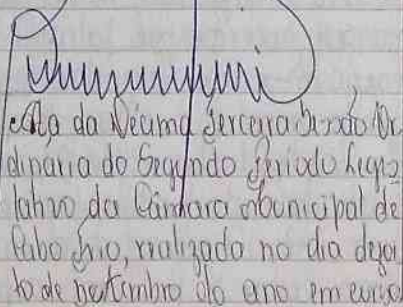 Ata da Décima Terceira Sessão Or
dinária do Segundo Período Legis
lativo da Câmara Municipal de
Cabo Frio, realizado no dia dezoi
to de setembro do ano em curso